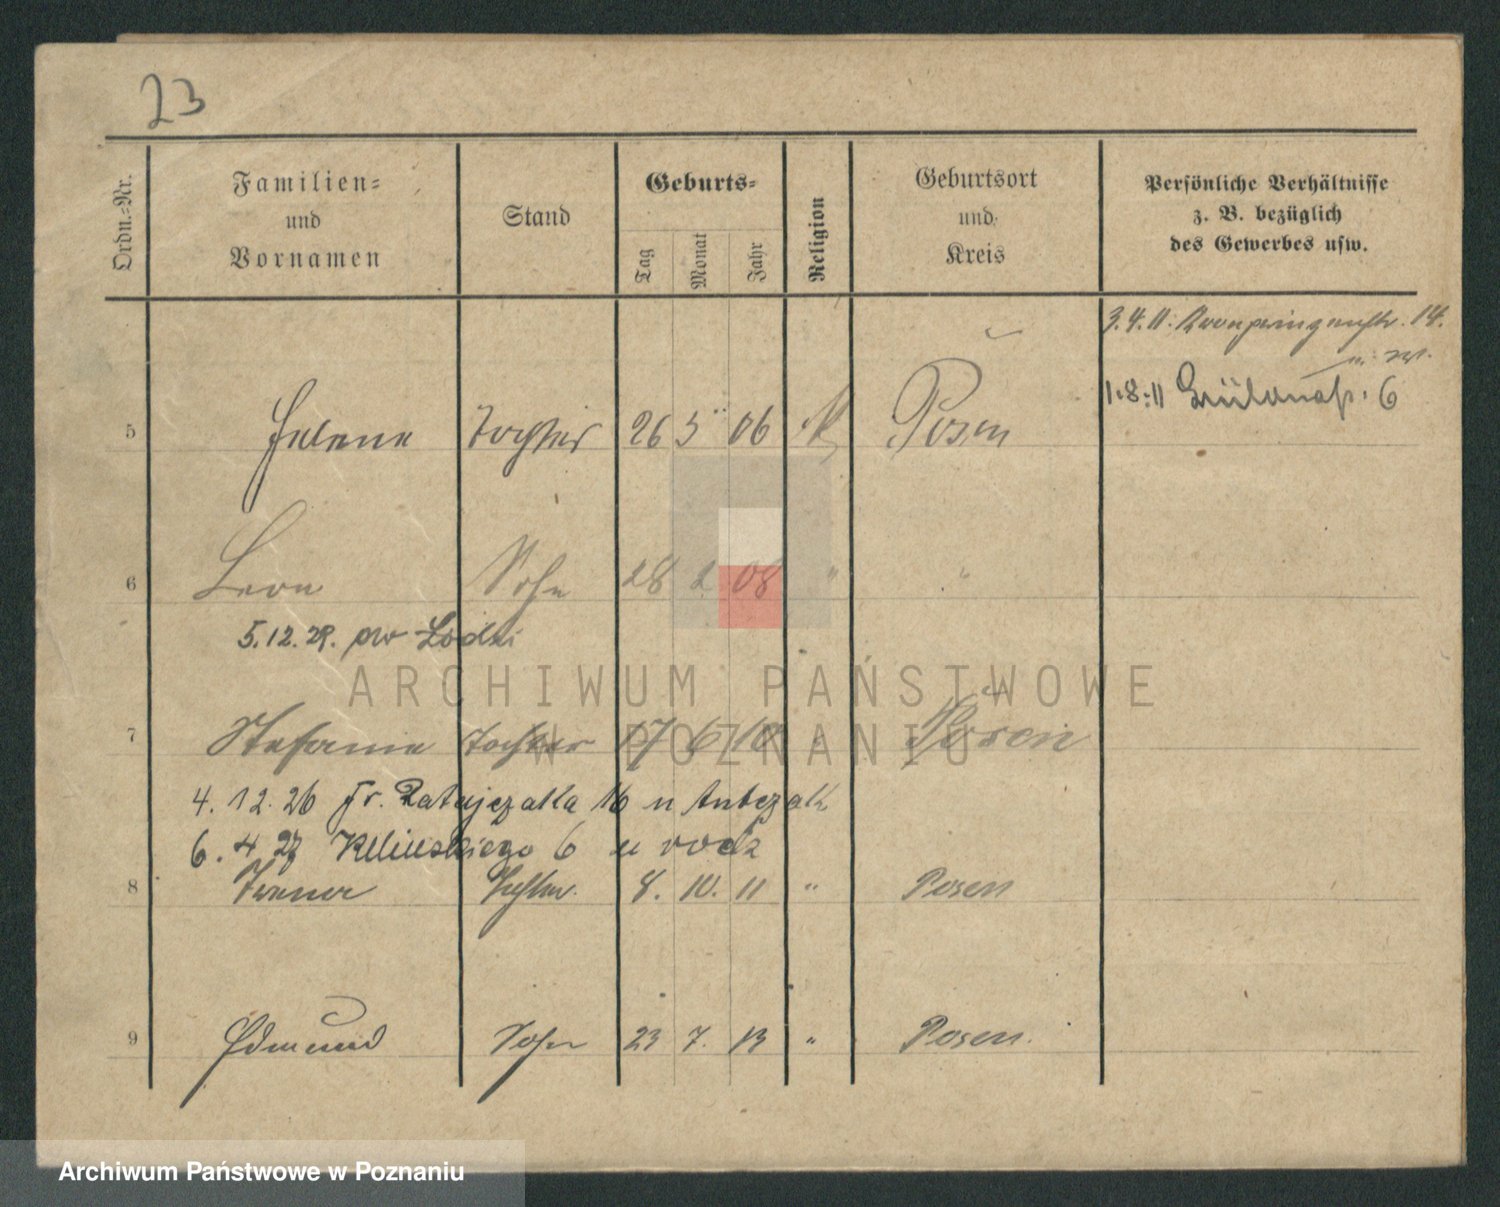 23
Ordn.-Nr.
Familien- und Vornamen
Stand
Geburts-
Tag
Monat
Jahr
Religion
Geburtsort und Kreis
Persönliche Verhältnisse z. B. bezüglich des Gewerbes usw.
3.4.11. Kronprinzenstr. 14.
1.8.11 6
5 Helene Tochter 26 5 06 K Posen
6 Leon Sohn 28 2 08 " "
5.12.29. pow Łódzki
7 Stefanie Tochter 17 6 10 " Posen
4.12.26 Fr. Ratajczaka 16 u Antczak
6.4 27 Kilińskiego 6 u rodz
8 Irena Tochter 8. 10. 11 " Posen
9 Edmund Sohn 23 7. 13 " Posen.
ARCHIWUM PAŃSTWOWE
W POZNANIU
Archiwum Państwowe w Poznaniu